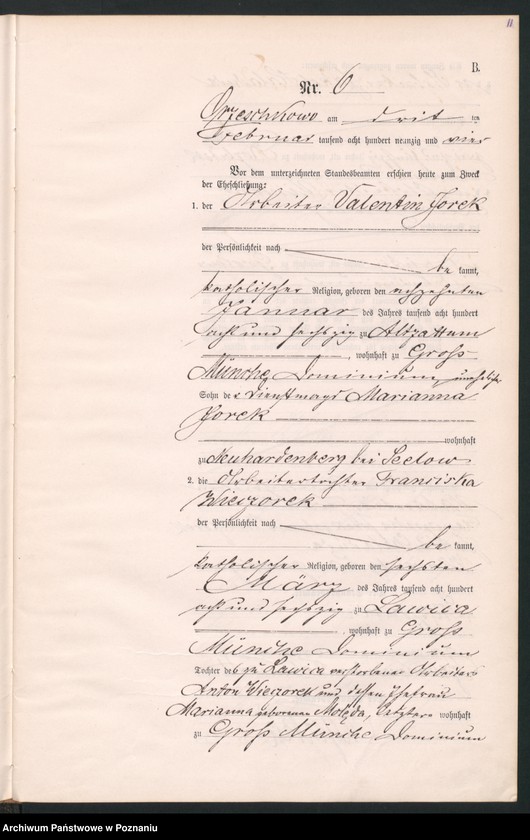 11
B.
Nr. 6
Orzeschkowo am drit ten
Februar tausend acht hundert neunzig und vier
Vor dem unterzeichneten Standesbeamten erschien heute zum Zweck
der Eheschließung:
1. der Arbeiter Valentin Jorek
der Persönlichkeit nach
be kannt,
katholischer Religion, geboren den achzehnten
Januar des Jahres tausend acht hundert
acht und sechszig zu Altzattum
, wohnhaft zu Gross
Münche Dominium, unehelicher
Sohn der Dienstmagd Marianna
Jorek
wohnhaft
zu Neuhardenberg bei Seelow
2. die Arbeitertochter Franciska
Wieczorek
der Persönlichkeit nach
be kannt,
katholischer Religion, geboren den sechsten
März des Jahres tausend acht hundert
acht und sechszig zu Lawica
, wohnhaft zu Gross
Münche Dominium
Tochter des zu Lawica verstorbenen Arbeiters
Anton Wieczorek und dessen Ehefrau
Marianna geborenen Molęda, letztere wohnhaft
zu Groß Münche Dominium
Archiwum Państwowe w Poznaniu